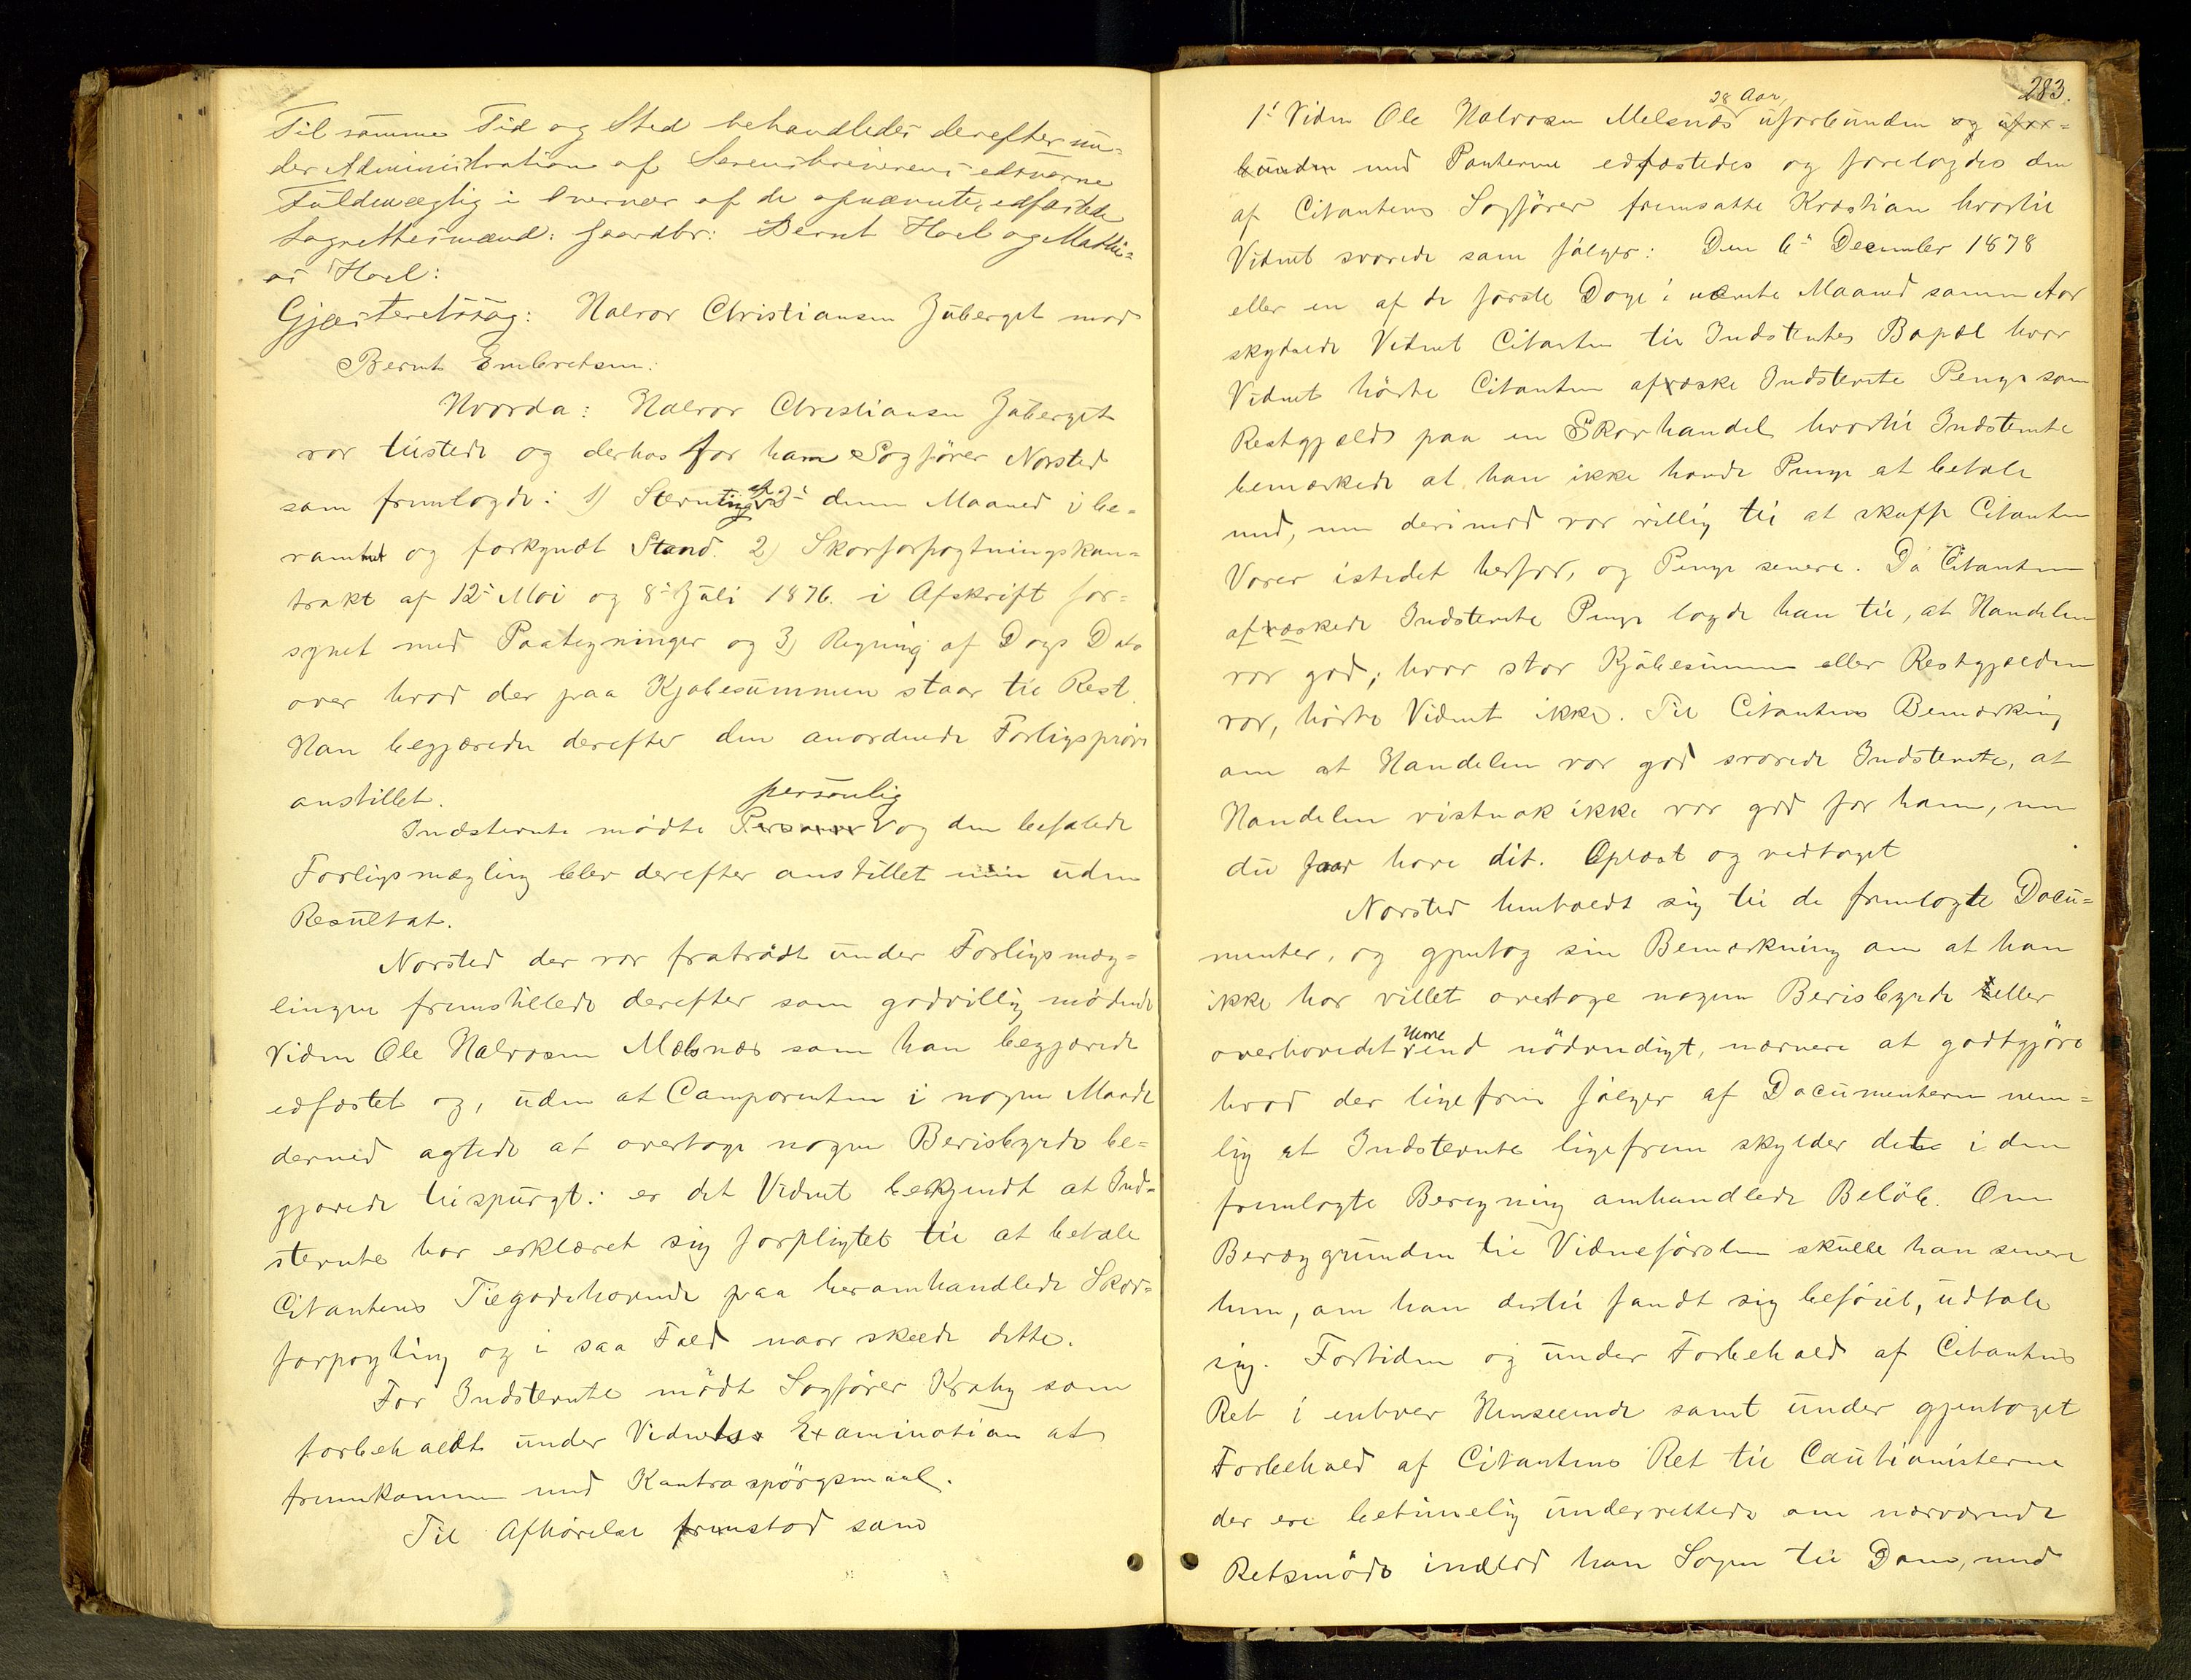 Til samme Tid og Sted behandledes derefter un-
der Administration af Sorenskriverens edsvorne
Fuldmægtig i Overvær af de opnævnte, edfæstede
Lagrettesmænd: Gaardbr: Bernt Hoel og Mathi-
as Hoel:
Gjæsteretssag: Halvor Christiansen Juberget mod
Bernt Embretsen:
Hvorda: Halvor Christiansen Juberget
var tilstede og derhos for ham Sagfører Norsted
som fremlagde: 1) Stevning af 3' denne Maaned i be-
rammet og forkyndt Stand. 2) Skovforpagtningskon-
trakt af 12' Mai og 8' Juli 1876. i Afskrift for-
synet med Paategninger og 3) Regning af Dags Dato
over hvad der paa Kjøbesummen staar til Rest.
Han begjærede derefter den anordnede Forligsprøve
anstillet.
Indstevnte mødte personlig og den befalede
Forligsmægling blev derefter anstillet men uden
Resultat.
Norsted der var fratraadt under Forligsmæg-
lingen fremstillede derefter som godvillig mødende
Vidne Ole Halvorsen Melsnæs som han begjærede
edfæstet og, uden at Comparenten i nogen Maade
derved agtede at overtage nogen Bevisbyrde be-
gjærede tilspurgt: er det Vidnet bekjendt at Ind-
stevnte har erklæret sig forpligtet til at betale
Citantens Tilgodehavende paa heromhandlede Skov-
forpagtning og i saa Fald naar skede dette.
For Indstevnte mødte Sagfører Kraby som
forbeholdt under Vidnets Examination at
fremkomme med Kontraspørgsmaal.
Til Afhørelse fremstod som
283.
1' Vidne Ole Halvorsen Melsnæs 28 Aar uforbunden og ufor-
bunden med Parterne edfæstedes og forelagdes den
af Citantens Sagfører fremsatte Kvæstion hvortil
Vidnet svarede som følger: Den 6' December 1878
eller en af de første Dage i nævnte Maaned samme Aar
skydsede Vidnet Citanten til Indstevntes Bopæl hvor
Vidnet hørte Citanten afæske Indstevnte Penge som
Restgjæld paa en Skovhandel hvortil Indstevnte
bemærkede at han ikke havde Penge at betale
med, men derimod var villig til at skaffe Citanten
Varer istedet herfor, og Penge senere. Da Citanten
afæskede Indstevnte Penge lagde han til, at Handelen
var god; hvor stor Kjøbesummen eller Restgjælden
var, hørte Vidnet ikke. Til Citantens Bemærkning
om at Handelen var god svarede Indstevnte, at
Handelen vistnok ikke var god for ham, men
du faar have dit. Oplæst og vedtaget
Norsted henholdt sig til de fremlagte Docu-
menter, og gjentog sin Bemærkning om at han
ikke har villet overtage nogen Bevisbyrde eller
overhovedet nødvendigt, nærmere at godtgjøre
hvad der ligefrem følger af Documenterne nem-
lig at Indstevnte ligefrem skylder dette i den
fremlagte Beregning omhandlede Beløb. Om
Bevæggrunden til Vidneførslen skulle han senere
hen, om han dertil fandt sig beføiet, udtale
sig. Fortiden og under Forbehold af Citantens
Ret i enhver Henseende samt under gjentaget
Forbehold af Citantens Ret til Cautionisterne
der ere betimelig underrettede om nærværende
Retsmøde indlod han Sagen til Dom, med